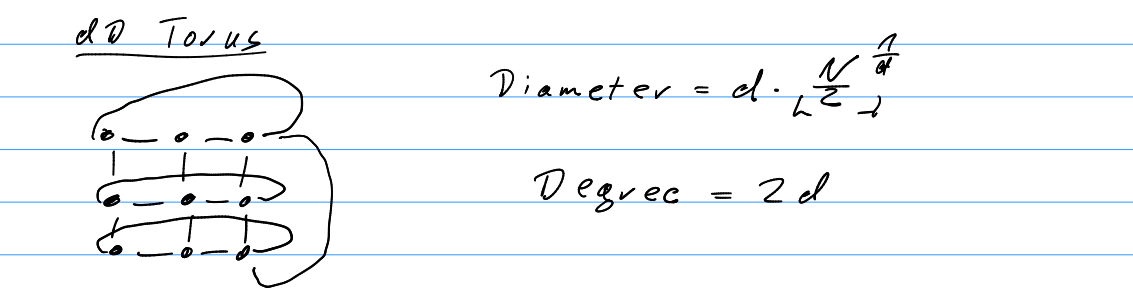 dD Torus
Diameter = d · ⌊N^(1/d)/2⌋
Degree = 2d